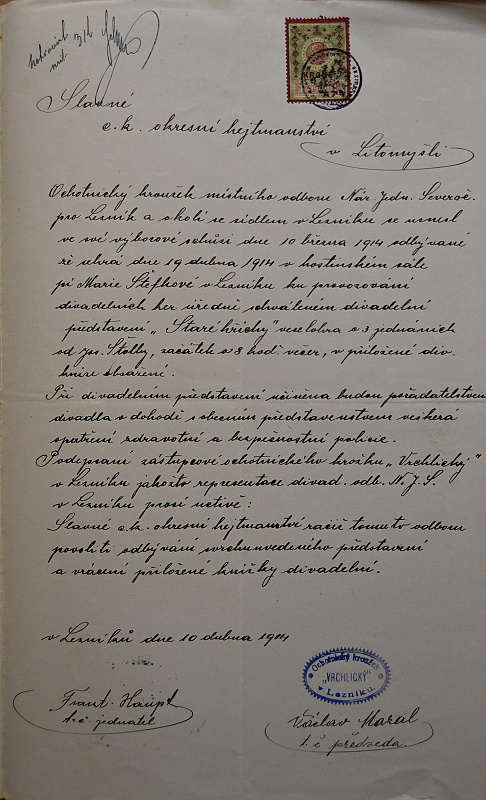 Slavné
c. k. okresní hejtmanství
v Litomyšli
Ochotnický kroužek místního odboru Nár. Jedn. Severoč.
pro Lezník a okolí se sídlem v Lezníku se usnesl
ve své výborové schůzi dne 10 března 1914 odbývané
že sehrá dne 19 dubna 1914 v hostinském sále
pí Marie Štefkové v Lezníku ku provozování
divadelních her úředně schváleném divadelní
představení „Staré hříchy" veselohra o 3 jednáních
od Jos. Štolby, začátek o 8 hod. večer, v přiložené div.
knize obsažení.
Při divadelním představení učiněna budou pořadatelstvem
divadla v dohodě s obecním představenstvem veškerá
opatření zdravotní a bezpečnostní policie.
Podepsaní zástupcové ochotnického krožku „Vrchlický"
v Lezníku jakožto representace divad. odb. N. J. S.
v Lezníku prosí uctivě:
Slavné c. k. okresní hejtmanství račiž tomuto odboru
povoliti odbývání svrchuuvedeného představení
a vrácení přiložené knížky divadelní.
v Lezníků dne 10 dubna 1914
Ochotnický kroužek
"VRCHLICKÝ"
v Lezníku.
Frant. Haupt
t. č. jednatel
Václav
t. č předseda